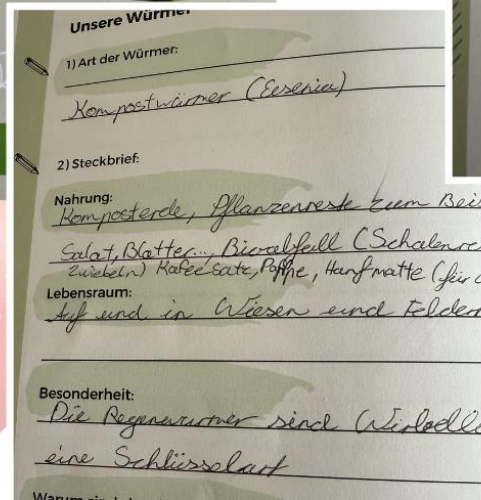 Unsere Würmer
1) Art der Würmer:
Kompostwürmer (Eisenia)
2) Steckbrief:
Nahrung:
Komposterde, Pflanzenreste zum Bei
Salat, Blätter..., Bioabfall (Schalenre
Zwiebeln) Kafeesatz, Pappe, Hanfmatte (für
Lebensraum:
Auf und in Wiesen und Feldern
Besonderheit:
Die Regenwürmer sind
eine Schlüsselart
Warum sind